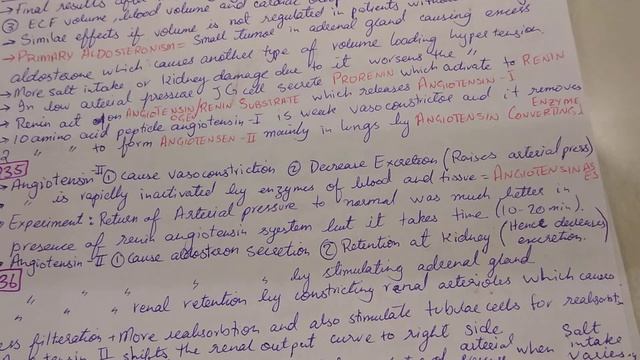 → Final results after
③ ECF volume, blood volume and cardiac
→ Similae effects if volume is not regulated in patients without
→ PRIMARY ALDOSTERONISM = Small tumor in adrenal gland causing excess
aldosterone which causes another type of volume loading hypertension.
→ More salt intake or kidney damage due to it worsens the "
→ In low arterial pressure JG cell secrete PRORENIN which activate to RENIN
→ Renin act on ANGIOTENSINOGEN/RENIN SUBSTRATE which releases ANGIOTENSIN-I
→ 10 amino acid peptide angiotensin-I is weak vasoconstrictor and it removes
2 " " to form ANGIOTENSEN-II mainly in lungs by ANGIOTENSIN CONVERTING ENZYME
235
→ Angiotensin II ① cause vasoconstriction ② Decrease Excretion (Raises arterial press)
" is rapidly inactivated by enzymes of blood and tissue = ANGIOTENSINASES
• Experiment: Return of Arterial pressure to normal was much better in
presence of renin angiotensin system but it takes time (10-20 min).
• Angiotensin-II ① Cause aldosteron secretion ② Retention at Kidney (Hence decreases excretion.
36
" " " " by stimulating adrenal gland
" " " renal retention by constricting renal arterioles which causes
less filteration + More reabsorbtion and also stimulate tubulae cells for reabsorbt.
II shifts the renal output curve to right side
arterial when Salt intake varies